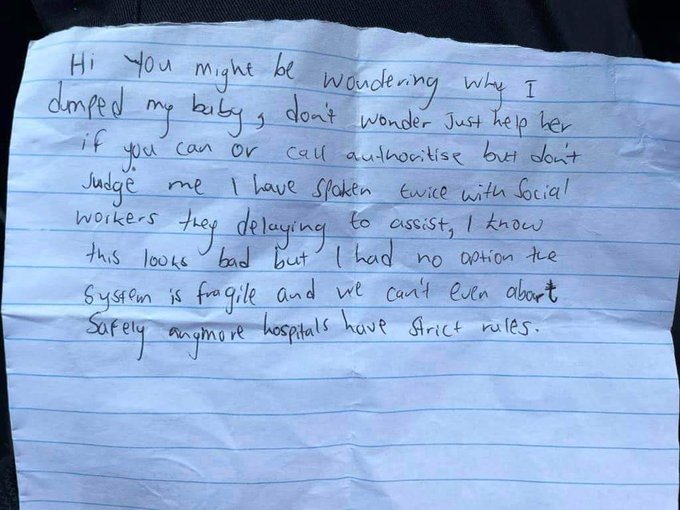 Hi You might be wondering why I
dumped my baby, don't wonder Just help her
if you can or call authoritise but don't
Judge me I have spoken twice with Social
workers they delaying to assist, I know
this looks bad but I had no option the
System is fragile and we can't even abort
Safely anymore hospitals have strict rules.